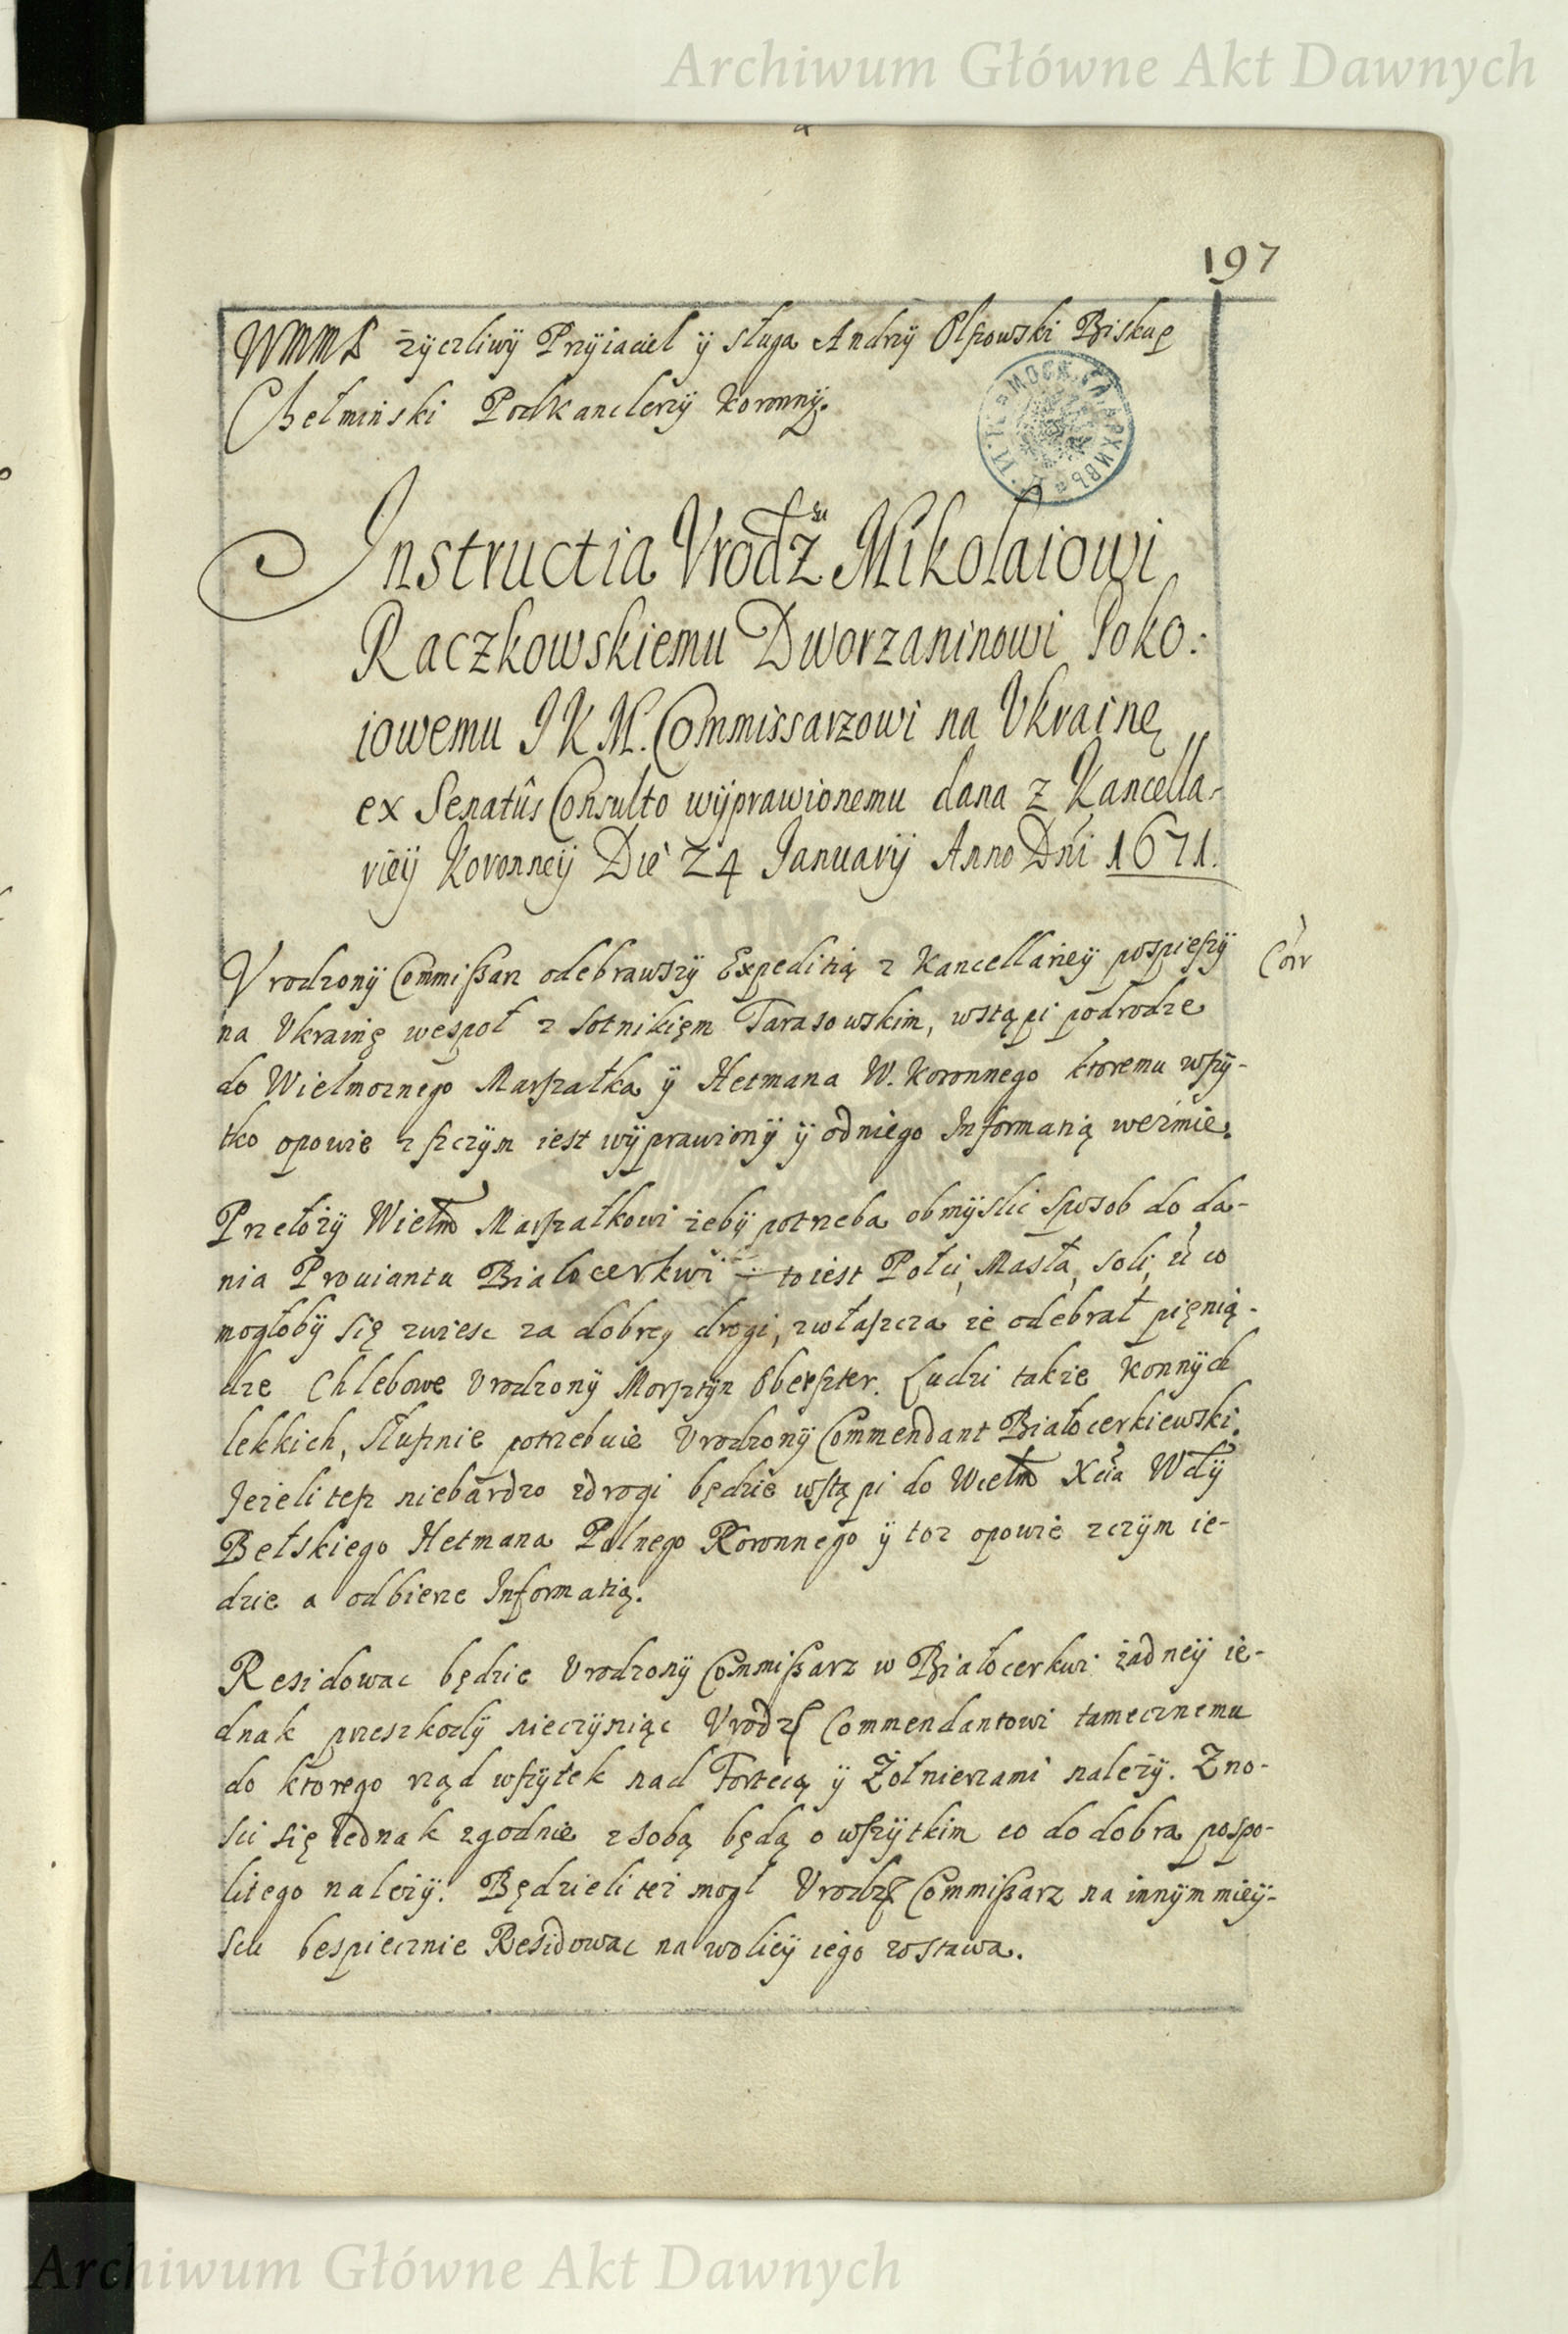 Archiwum Główne Akt Dawnych
197
WMMP zyczliwÿ Przÿiaciel ÿ sługa Andrzÿ Olszowski Biskup
Chełminski Podkanclerzÿ Koronnÿ.
Instructia Vrodz Mikolaiowi
Raczkowskiemu Dworzaninowi Poko:
iowemu J K M. Commissarzowi na Vkrainę
ex Senatûs Consulto wÿprawionemu dana z Kancella-
rieÿ Koronneÿ Die 24 Januarÿ Anno Dni 1671.
Vrodzonÿ Commissarz odebrawszÿ Expeditią z Kancellarieÿ pospieszÿ
Corr
na Vkrainę wespoł z Sotnikięm Tarasowskim, wstąpi podrodze
do Wielmoznego Marszałka ÿ Hetmana W. Koronnego ktoremu wszÿ-
tko opowie z szczÿm iest wÿprawionÿ ÿ odniego Informatią weźmie.
Przełozÿ Wielm Marszałkowi zebÿ potrzeba obmÿslic sposob do da-
nia Prouiantu Białocerkwi to iest Połci, Masła, Soli, ù co
mogłobÿ się zwiesc za dobreÿ drogi, zwłaszcza ze odebrał pięnią-
dze Chlebowe Vrodzonÿ Morsztÿn Obersztter. Ludzi takze Konnÿch
lekkich, słusznie potrzebuie Vrodzonÿ Commendant Białocerkiewski.
Jezeli tesz niebardzo zdrogi będzie wstąpi do Wielm Xcia Wdÿ
Bełskiego Hetmana Polnego Koronnego ÿ toz opowie zczÿm ie-
dzie a odbierze Informatią.
Residowac będzie Vrodzonÿ Commissarz w Białocerkwi żadneÿ ie-
dnak przeszkodÿ nieczÿniąc Vrodz Commendantowi tamecznemu
do ktorego rząd wszÿtek nad Fortecą ÿ Żołnierzami nalezÿ. Zno-
sic się iednak zgodnie zsobą będą o wszÿtkim co do dobra pospo-
litego nalezÿ. Będzieli tez mogł Vrodz Commissarz na innÿm mieÿ-
scu bespiecznie Residowac na wolieÿ iego zostawa.
Archiwum Główne Akt Dawnych